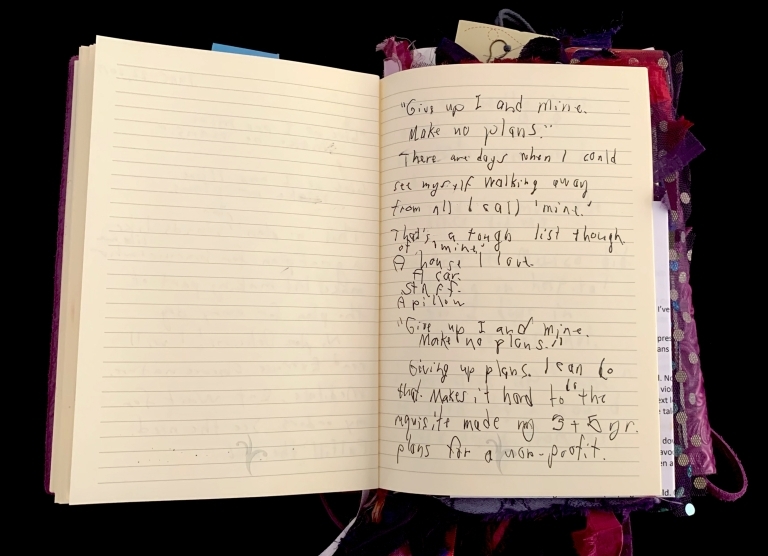 "Give up I and mine.
Make no plans."
There are days when I could
see myself walking away
from all I call 'mine.'
That's a tough list though
of 'mine'
A house I love.
A car.
Stuff.
A pillow
"Give up I and mine.
Make no plans."
Giving up plans. I can do
that. Makes it hard to do the
requisite made my 3 + 5 yr.
plans for a non-profit.
I've
pres
ans
l. No
viol
ext l
e tal
dou
avo
en a
ld.